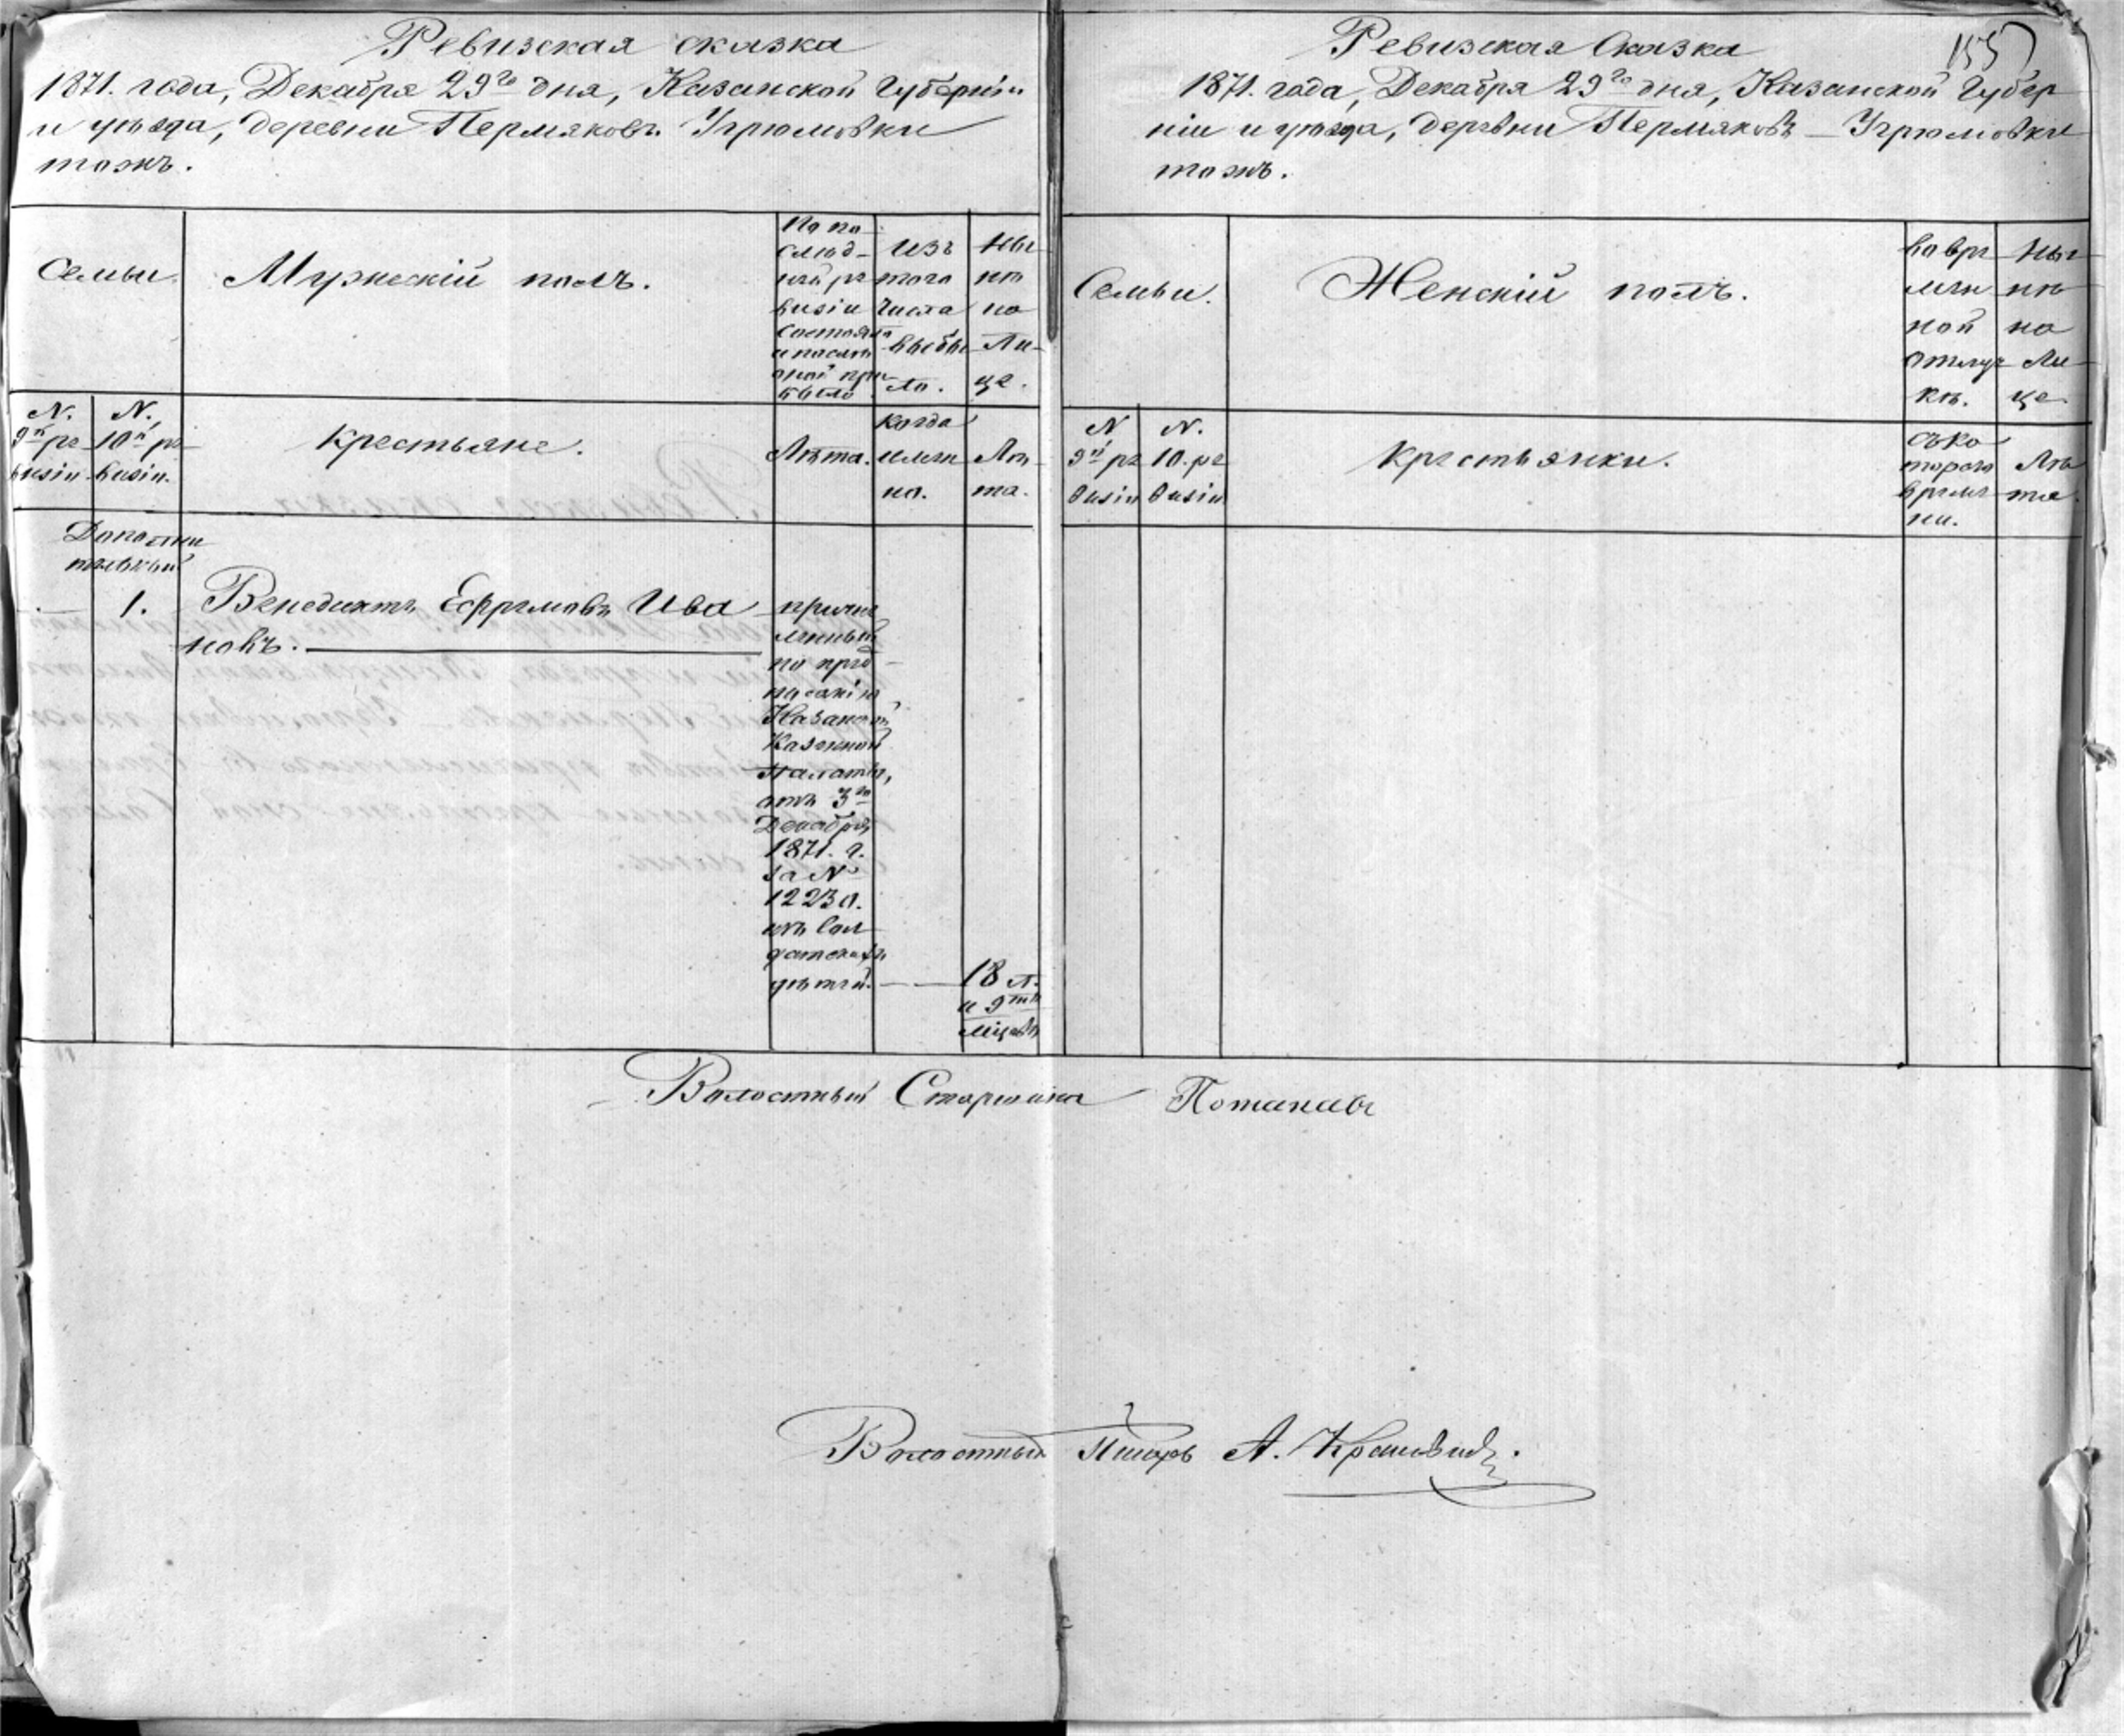 Ревизская сказка
1871. года, Декабря 29го дня, Казанской Губерніи
и уѣзда, деревни Пермяковъ Угрюмовки
тожъ.
Семьи.
Мужескій полъ.
По по
слѣд-
ней ре
визіи
состояло
и послѣ
оной при
было
Изъ
того
числа
выбы
ло.
Ны
нѣ
на
ли-
це.
N.
9й ре
визіи
N.
10й ре
визіи.
Крестьяне.
Лѣта.
когда
имен
но.
Лѣ
та.
Дополни
тельный
1.
Венедиктъ Ефремовъ Ива
новъ.
причис
ленный
по пред
писанію
Казанской
Казенной
Палаты,
отъ 3го
Декабря
1871. г.
за №
12230.
изъ сол
датскихъ
дѣтей.
18 л.
и 9ть
міцовъ
155
Ревизская Сказка
1871. года, Декабря 29го дня, Казанской Губер
ніи и уѣзда, деревни Пермяковъ – Угрюмовки
тожъ.
Семьи.
Женскій полъ.
Во вре
мен
ной
отлуч
кѣ.
Ны
нѣ
на
ли
це
N
9й ре
визіи
N.
10. ре
визіи
Крестьянки.
Съ ко
тораго
време
ни.
Лѣ
та.
Волостный Старшина Потаповъ
Волостный Писарь А.